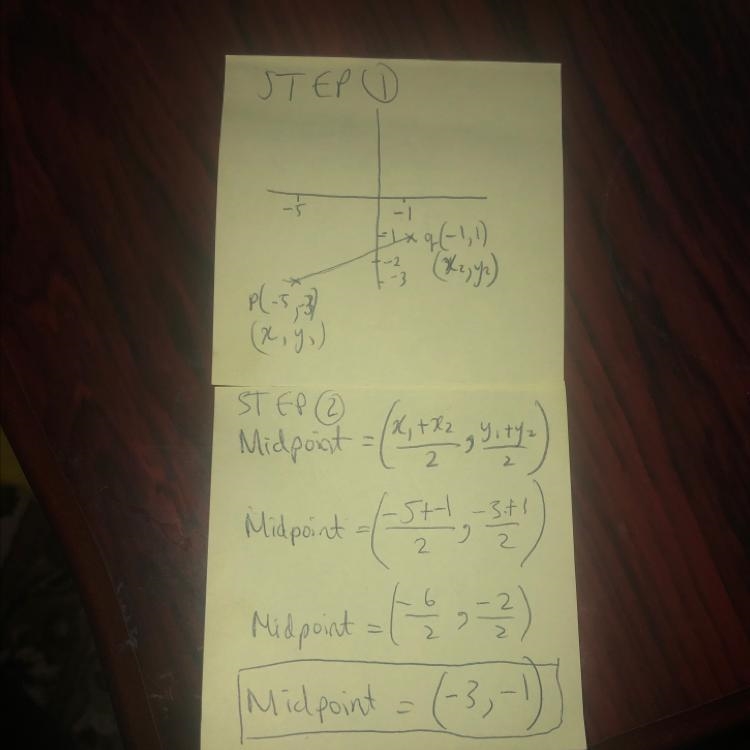 STEP ①
-5
-1
-1 q(-1,1)
-2 (x₂,y₂)
-3
P(-5,-3)
(x₁y₁)
STEP ②
Midpoint = (x₁+x₂/2, y₁+y₂/2)
Midpoint = (-5+-1/2, -3+1/2)
Midpoint = (-6/2, -2/2)
Midpoint = (-3,-1)